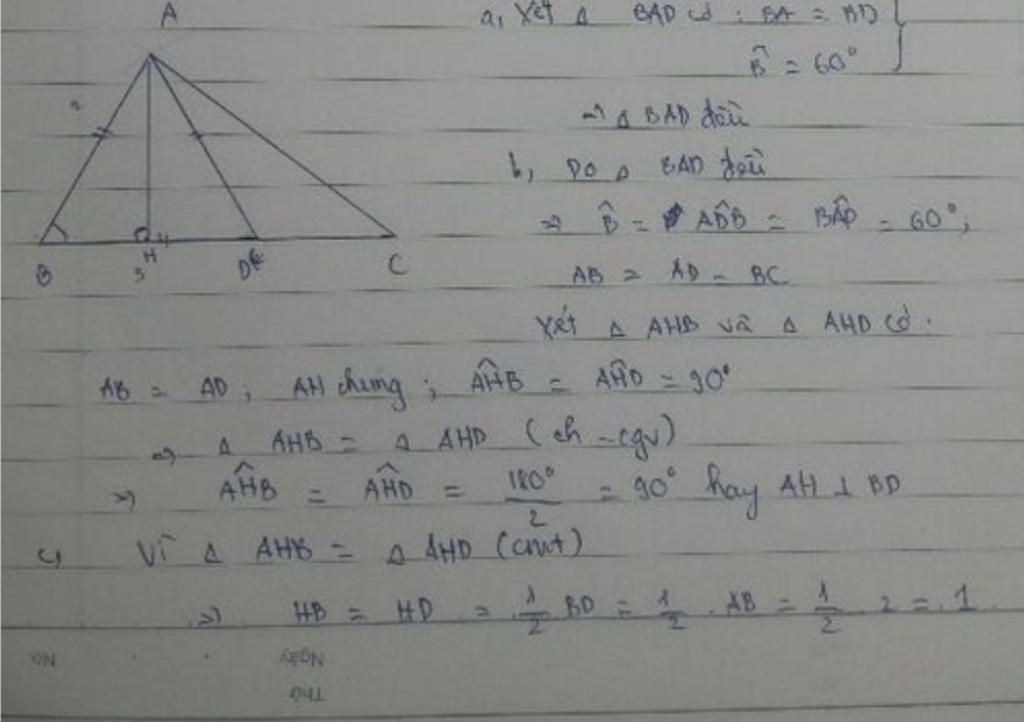 A
a, Xét Δ BAD có : BA = BD
B̂ = 60°
=> Δ BAD đều
b, Do Δ BAD đều
=> B̂ = AD̂B = BÂD = 60°;
B H D C
3
AB = AD = BC
Xét Δ AHB và Δ AHD có :
AB = AD ; AH chung ; AĤB = AĤD = 90°
=> Δ AHB = Δ AHD (ch - cgv)
=> AĤB = AĤD = 180°/2 = 90° hay AH ⊥ BD
c, Vì Δ AHB = Δ AHD (cmt)
=> HB = HD = 1/2 BD = 1/2 . AB = 1/2 . 2 = 1
No
Ngày
Thứ